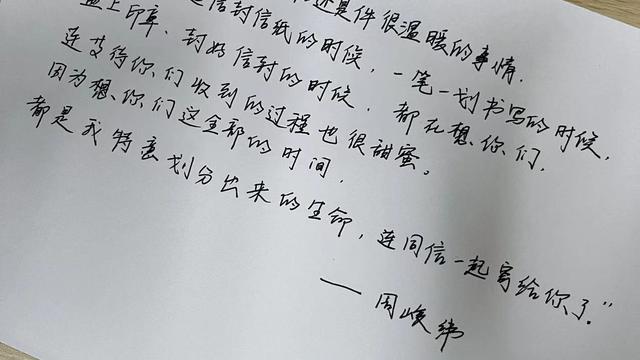 还是件很温暖的事情.
信封信纸的时候, 一笔一划书写的时候,
盖上印章、封好信封的时候, 都在想你们,
连等待你们收到的过程也很甜蜜。
因为想你们这全部的时间,
都是我特意划分出来的生命, 连同信一起寄给你了."
—— 周峻纬